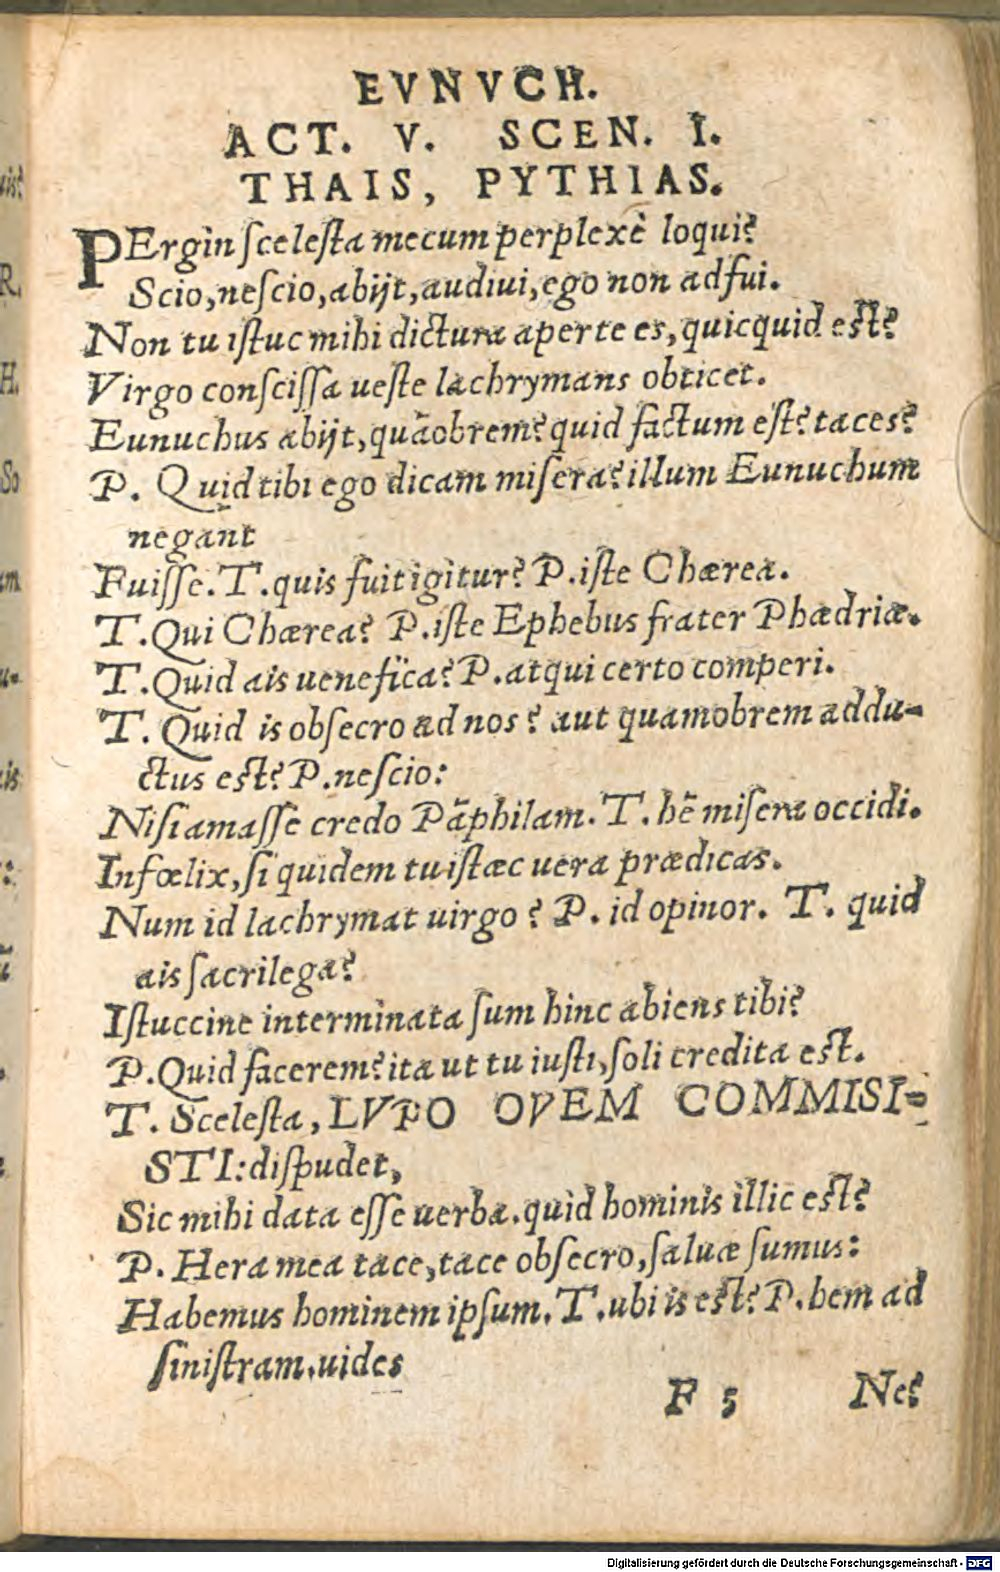 EVNVCH.
ACT. V. SCEN. I.
THAIS, PYTHIAS.
PErgin scelesta mecum perplexè loqui?
Scio, nescio, abijt, audiui, ego non adfui.
Non tu istuc mihi dictura aperte es, quicquid est?
Virgo conscissa ueste lachrymans obticet.
Eunuchus abijt, quãobrem? quid factum est? taces?
P. Quid tibi ego dicam misera? illum Eunuchum
negant
Fuisse. T. quis fuit igitur? P. iste Chærea.
T. Qui Chærea? P. iste Ephebus frater Phædriæ.
T. Quid ais uenefica? P. atqui certo comperi.
T. Quid is obsecro ad nos? aut quamobrem addu-
ctus est? P. nescio:
Nisi amasse credo Pãphilam. T. hẽ misera occidi.
Infœlix, si quidem tu istæc uera prædicas.
Num id lachrymat uirgo? P. id opinor. T. quid
ais sacrilega?
Istuccine interminata sum hinc abiens tibi?
P. Quid facerem? ita ut tu iusti, soli credita est.
T. Scelesta, LVPO OVEM COMMISI-
STI: dispudet,
Sic mihi data esse uerba. quid hominis illic est?
P. Hera mea tace, tace obsecro, saluæ sumus:
Habemus hominem ipsum. T. ubi is est? P. hem ad
sinistram. uides
F 5 Ne?
uis?
R.
H.
So
am
u-
is
Digitalisierung gefördert durch die Deutsche Forschungsgemeinschaft - DFG